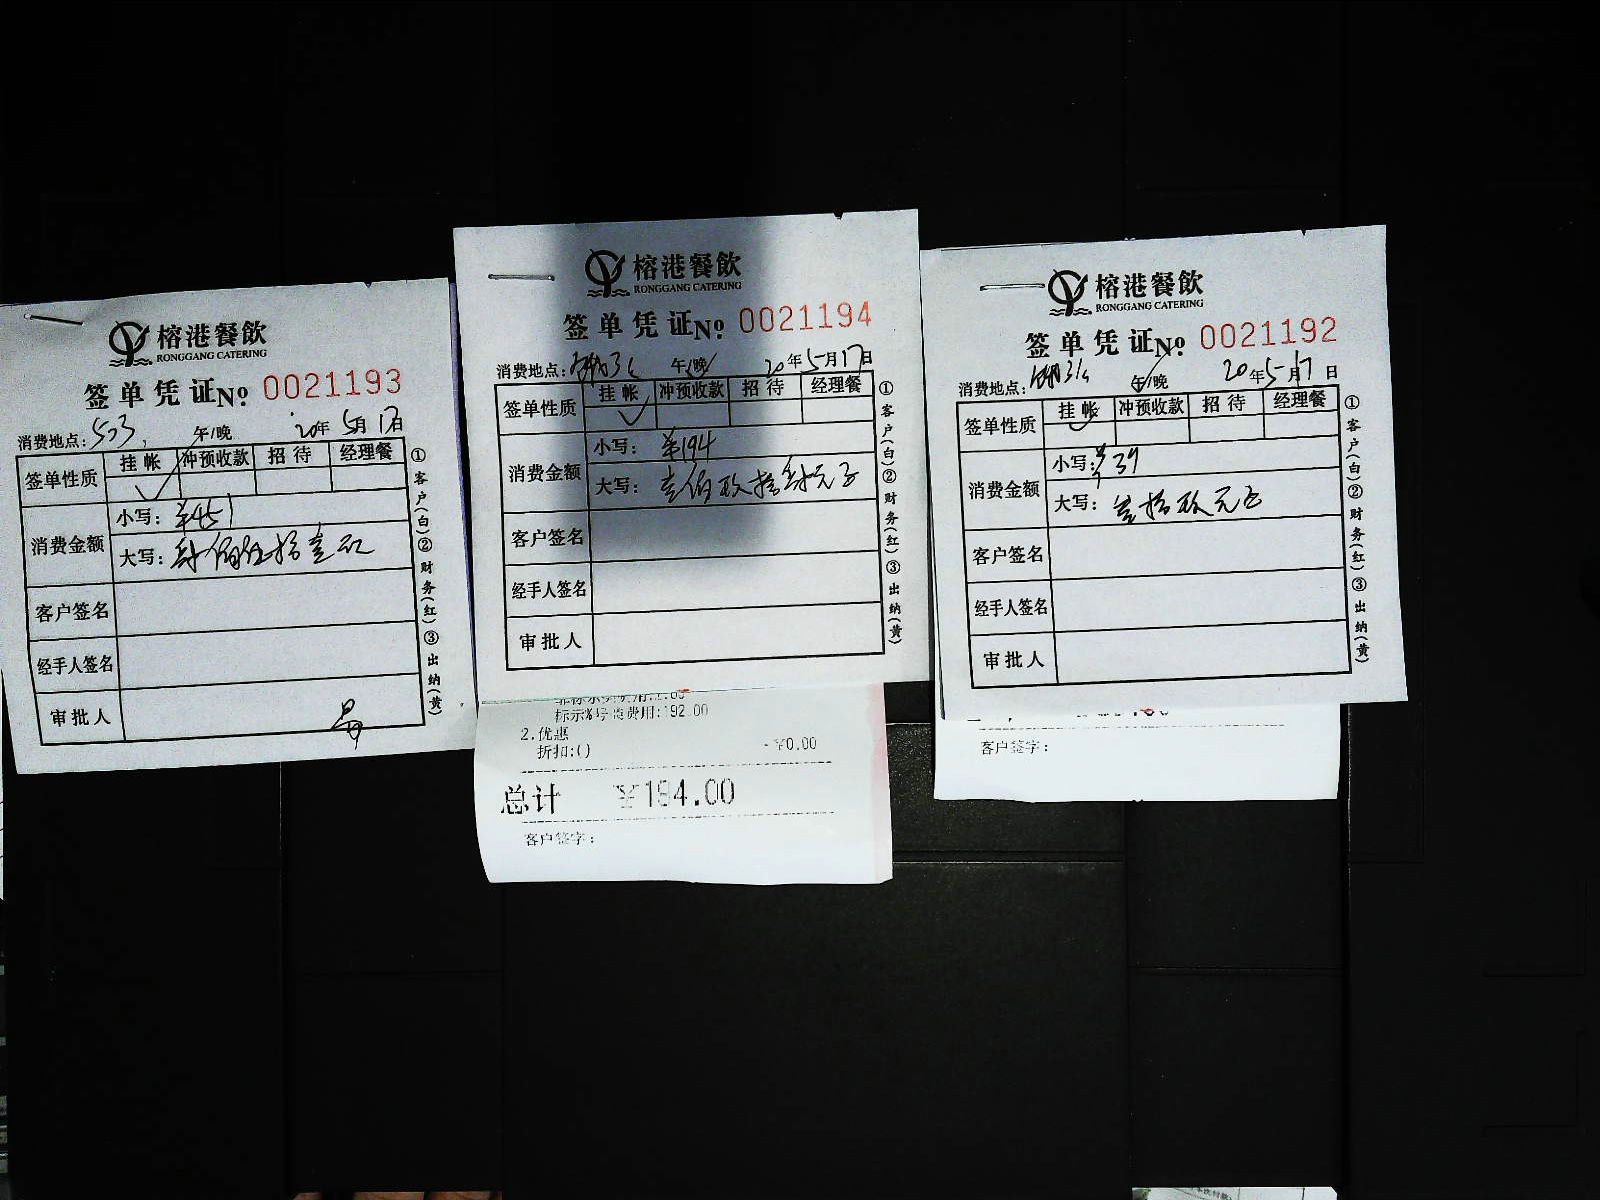 榕港餐飲
RONGGANG CATERING
签单凭证№ 0021193
消费地点: 533 午/晚 20年5月17日
签单性质 挂帐 冲预收款 招待 经理餐
消费金额
小写: ¥451
大写: 肆佰伍拾壹元
客户签名
经手人签名
审批人
①客户(白)②财务(红)③出纳(黄)
榕港餐飲
RONGGANG CATERING
签单凭证№ 0021194
消费地点: 午/晚 20年5月17日
签单性质 挂帐 冲预收款 招待 经理餐
消费金额
小写: ¥194
大写: 壹佰玖拾肆元正
客户签名
经手人签名
审批人
①客户(白)②财务(红)③出纳(黄)
标示%号消费用:192.00
2.优惠
折扣:() -¥0.00
总计 ¥194.00
客户签字:
榕港餐飲
RONGGANG CATERING
签单凭证№ 0021192
消费地点: 午/晚 20年5月17日
签单性质 挂帐 冲预收款 招待 经理餐
消费金额
小写: ¥39
大写: 叁拾玖元正
客户签名
经手人签名
审批人
①客户(白)②财务(红)③出纳(黄)
客户签字: